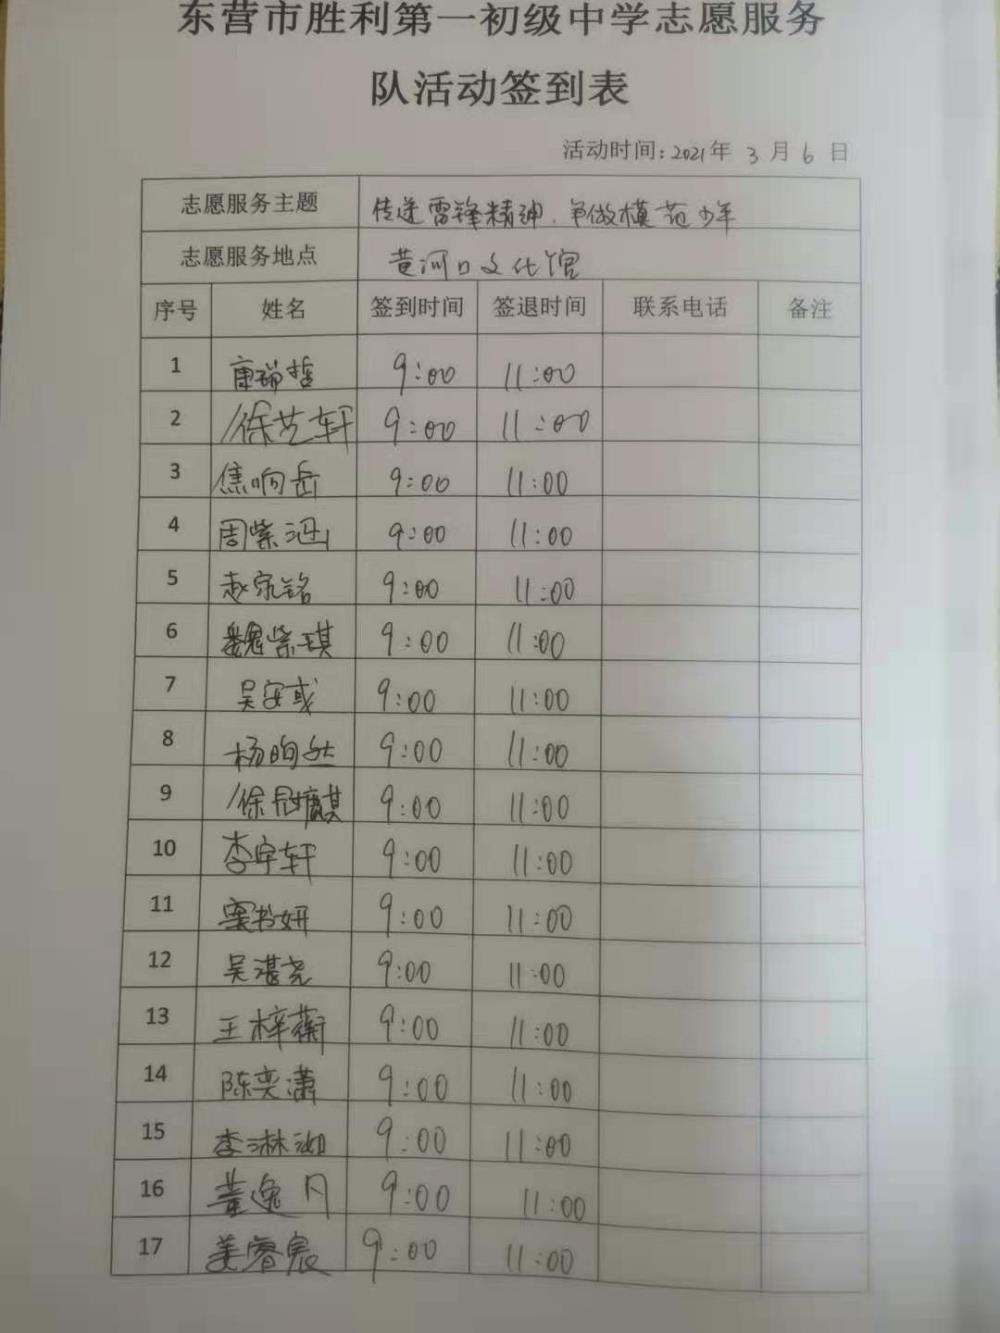 东营市胜利第一初级中学志愿服务
队活动签到表
活动时间:2021年 3 月 6 日
志愿服务主题 传递雷锋精神、争做模范少年
志愿服务地点 黄河口文化馆
序号 姓名 签到时间 签退时间 联系电话 备注
1 康瑞哲 9:00 11:00
2 徐艺轩 9:00 11:00
3 焦响岳 9:00 11:00
4 周紫涵 9:00 11:00
5 赵家铭 9:00 11:00
6 魏紫琪 9:00 11:00
7 吴安彧 9:00 11:00
8 杨昫然 9:00 11:00
9 徐 9:00 11:00
10 李宇轩 9:00 11:00
11 窦书妍 9:00 11:00
12 吴湛尧 9:00 11:00
13 王梓蘅 9:00 11:00
14 陈奕潇 9:00 11:00
15 李淋汝 9:00 11:00
16 董逸凡 9:00 11:00
17 姜睿宸 9:00 11:00